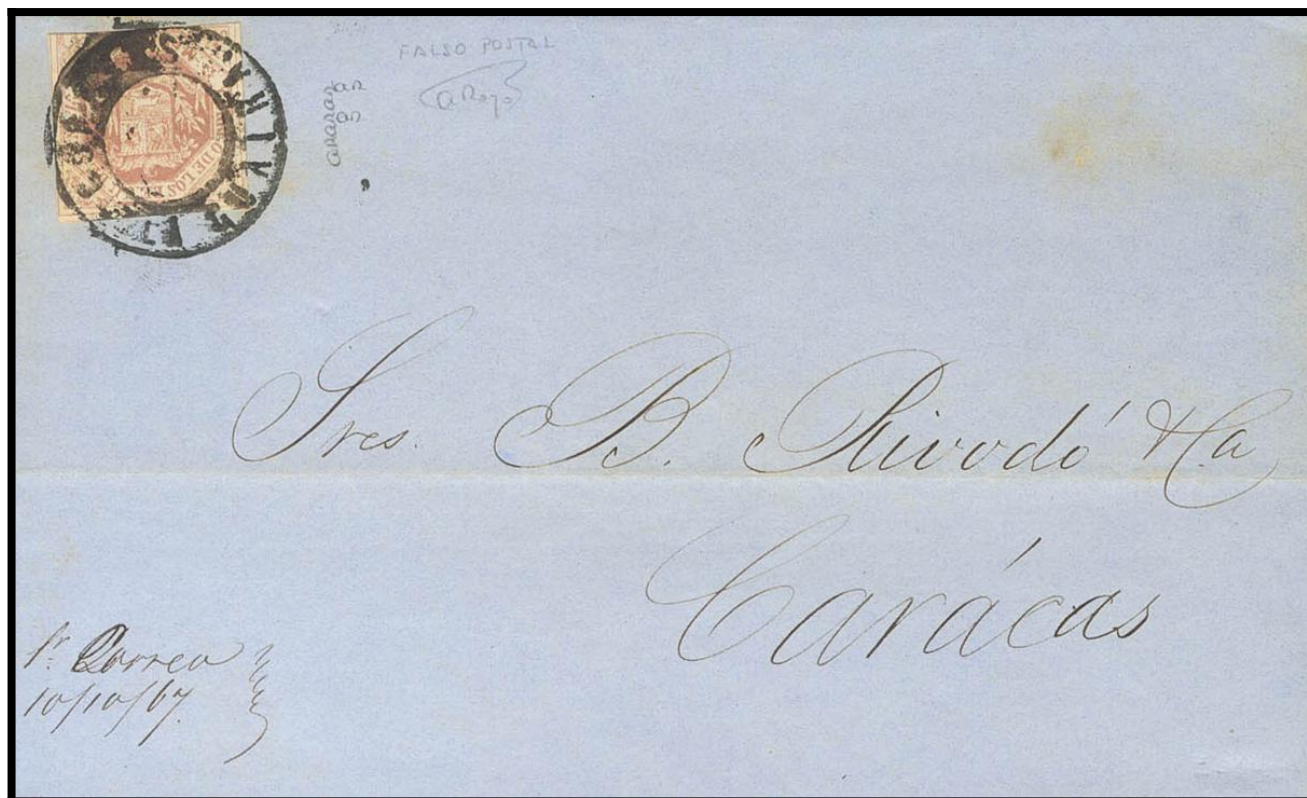 FALSO POSTAL
aRoyo
LOS
Sres. B. Rivodó & Ca
Carácas
Pr. Correo
10/10/67.